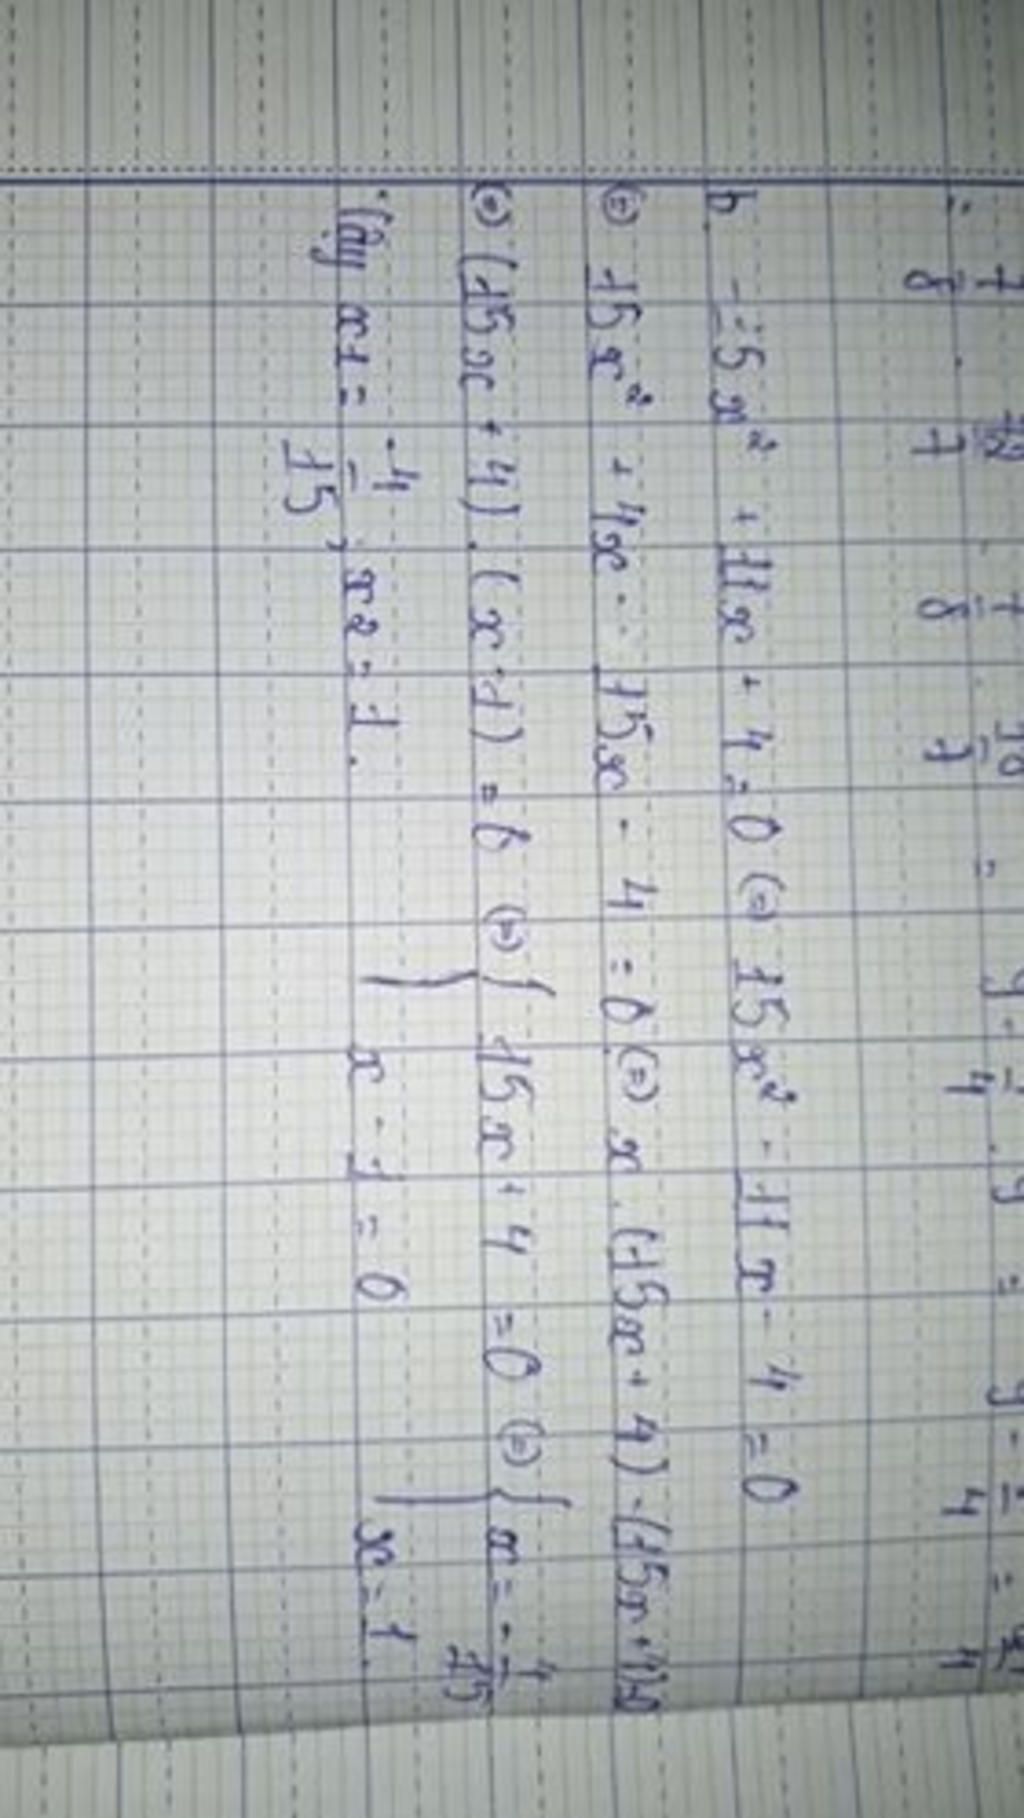 = 7/8 . 12/7 . 7/8 . 10/7 = y . 1/4 . y = y . 1/4 =
b. -15x² + 11x + 4 = 0 (=) 15x² - 11x - 4 = 0
(=) 15x² + 4x - 15x - 4 = 0 (=) x . (15x + 4) - (15x + 4) = 0
(=) (15x + 4) . (x - 1) = 0 (=) { 15x + 4 = 0 (=) { x = -4/15
x - 1 = 0 x = 1.
Vậy x1 = -4/15, x2 = 1.